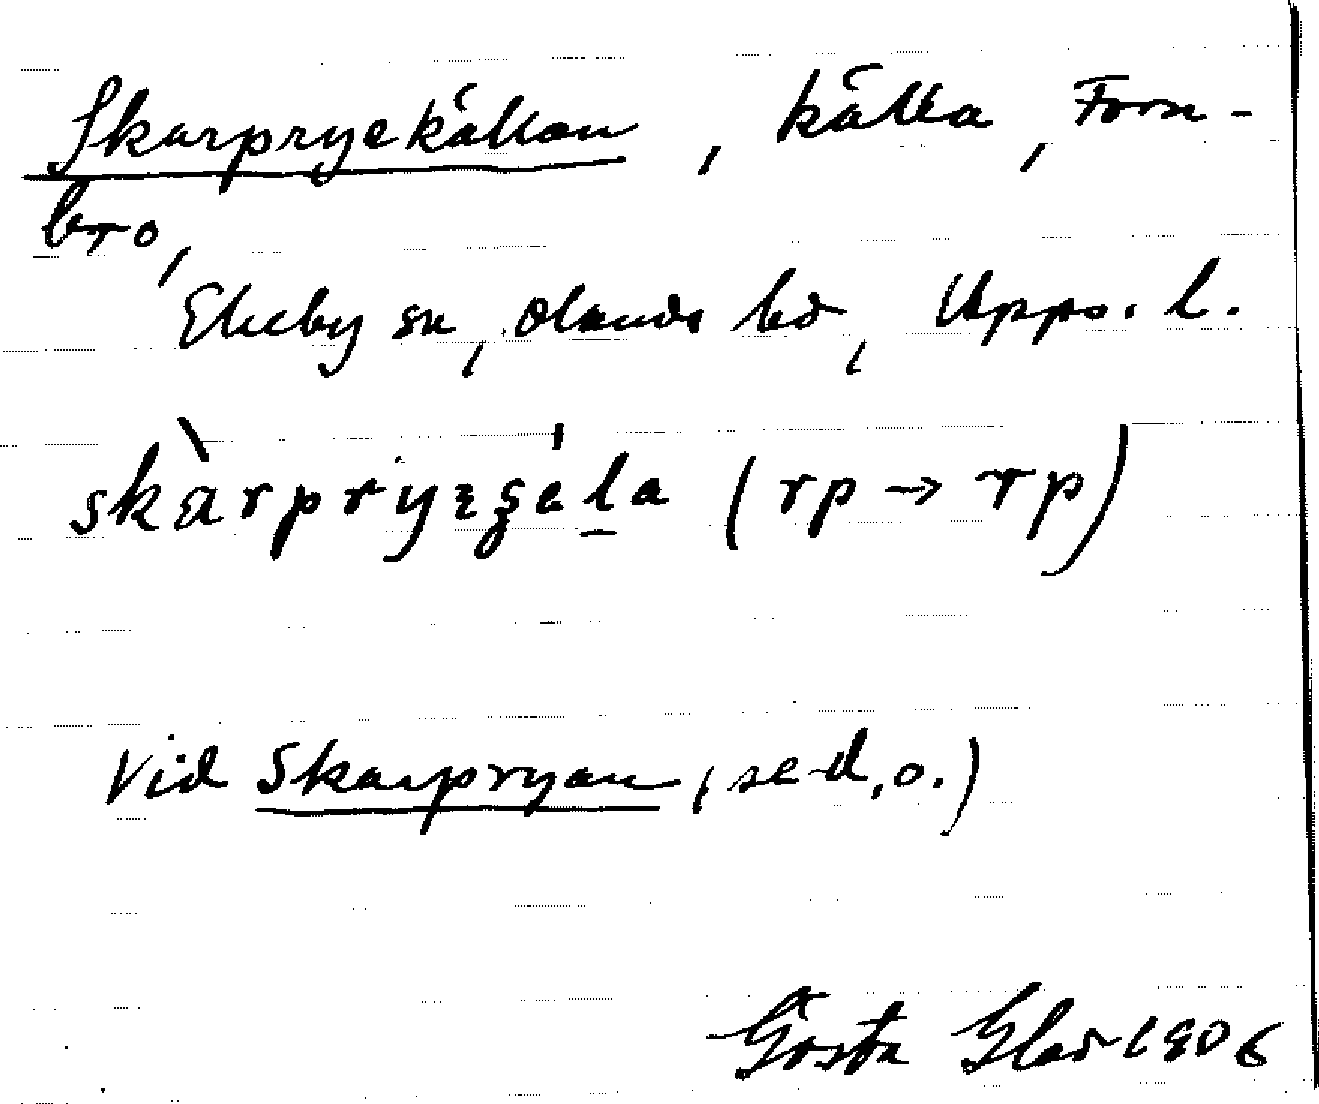 Skarpryekällan, källa, Forn-
bro,
Ekeby sn, Olands hd, Upps. l.
skàrpryꝫʂéla (rp → rp)
Vid Skarpryan (se d.o.)
Gösta Glad 1906